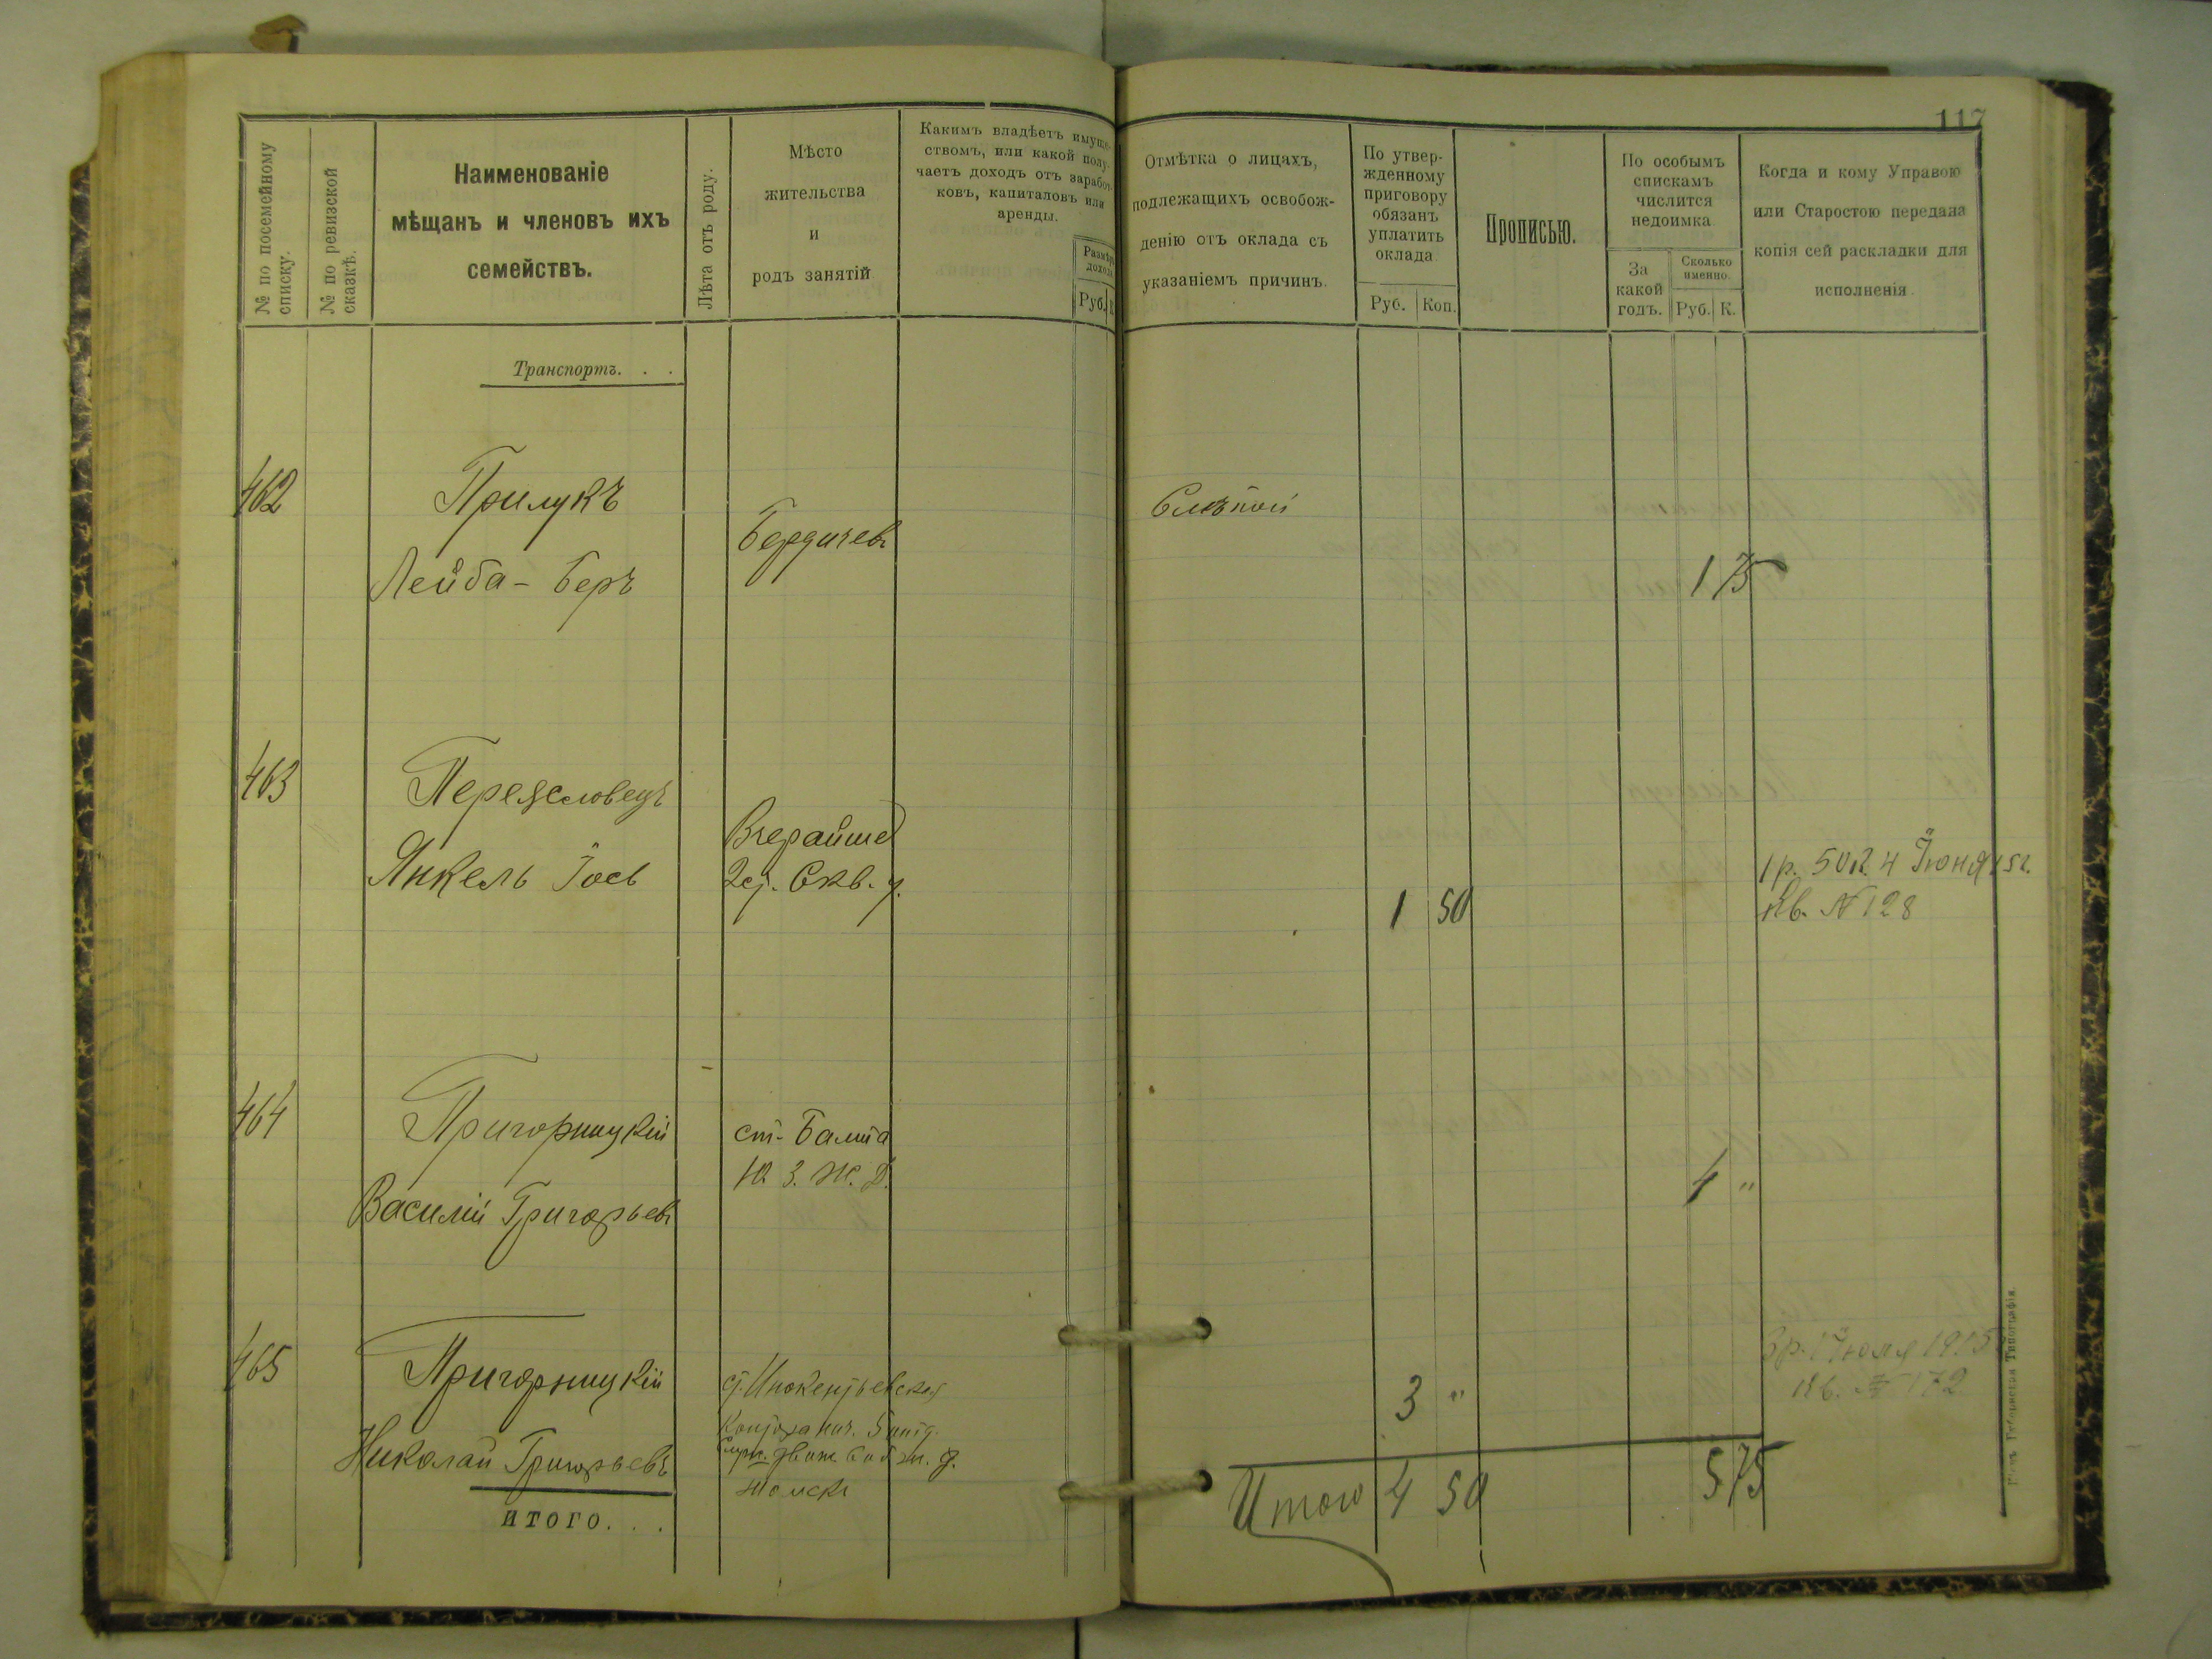 117
№ по посемейному
списку.
№ по ревизской
сказкѣ.
Наименованіе
мѣщанъ и членовъ ихъ
семействъ.
Лѣта отъ роду.
Мѣсто
жительства
и
родъ занятій
Какимъ владѣетъ имуще-
ствомъ, или какой полу-
чаетъ доходъ отъ заработ-
ковъ, капиталовъ или
аренды.
Размѣръ
дохода
Руб. К
Отмѣтка о лицахъ,
подлежащихъ освобож-
денію отъ оклада съ
указаніемъ причинъ.
По утвер-
жденному
приговору
обязанъ
уплатить
оклада
Руб. Коп.
Прописью.
По особымъ
спискамъ
числится
недоимка
За
какой
годъ.
Сколько
именно.
Руб. К.
Когда и кому Управою
или Старостою передана
копія сей раскладки для
исполненія.
Транспортъ. . .
462
Прилукъ
Лейба - Беръ
Бердичевъ
Слѣпой
1 75
463
Переясловецъ
Янкель Іось
Вчерайше
Скв. у.
1 50
1 р. 50 к. 4 Іюня 15 г.
Кв. № 128
464
Пригорницкій
Василій Григорьевъ
ст. Балта
Ю. З. Ж. Д.
4 "
465
Пригорницкій
Николай Григорьевъ
ст. Инокентьевская
Контора нач.
Служ. Движ. ж. д.
Томскъ
3 "
3 р. 1 Іюля 1915
Кв. № 172
итого. . .
Итого 4 50
5 75
Типографія.